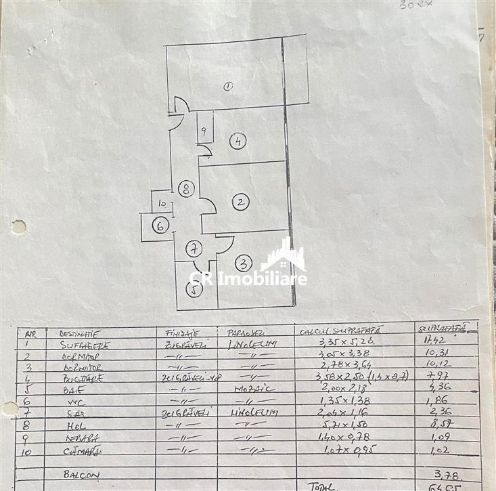 30ex
1
9
4
8
2
10
6
7
3
5
CR Imobiliare
NR DESTINATIE FINISAJE PARDOSELI CALCUL SUPRAFATA SUPRAFATA
1 SUFRAGERIE ZUGRAVELI LINOLEUM 3,35 x 5,26 17,42
2 DORMITOR -"- -"- 3,05 x 3,38 10,31
3 DORMITOR -"- -"- 2,78 x 3,64 10,12
4 BUCATARIE ZUGRAVELI -"- 3,58 x 2,50 (1,4 x 0,7) 7,97
5 BAIE -"- MOZAIC 2,00 x 2,18 4,36
6 WC -"- -"- 1,35 x 1,38 1,86
7 SAS ZUGRAVELI LINOLEUM 2,04 x 1,16 2,36
8 HOL -"- -"- 5,71 x 1,50 8,57
9 DEBARA -"- -"- 1,40 x 0,78 1,09
10 CAMARA -"- -"- 1,07 x 0,95 1,02
BALCON 3,78
TOTAL